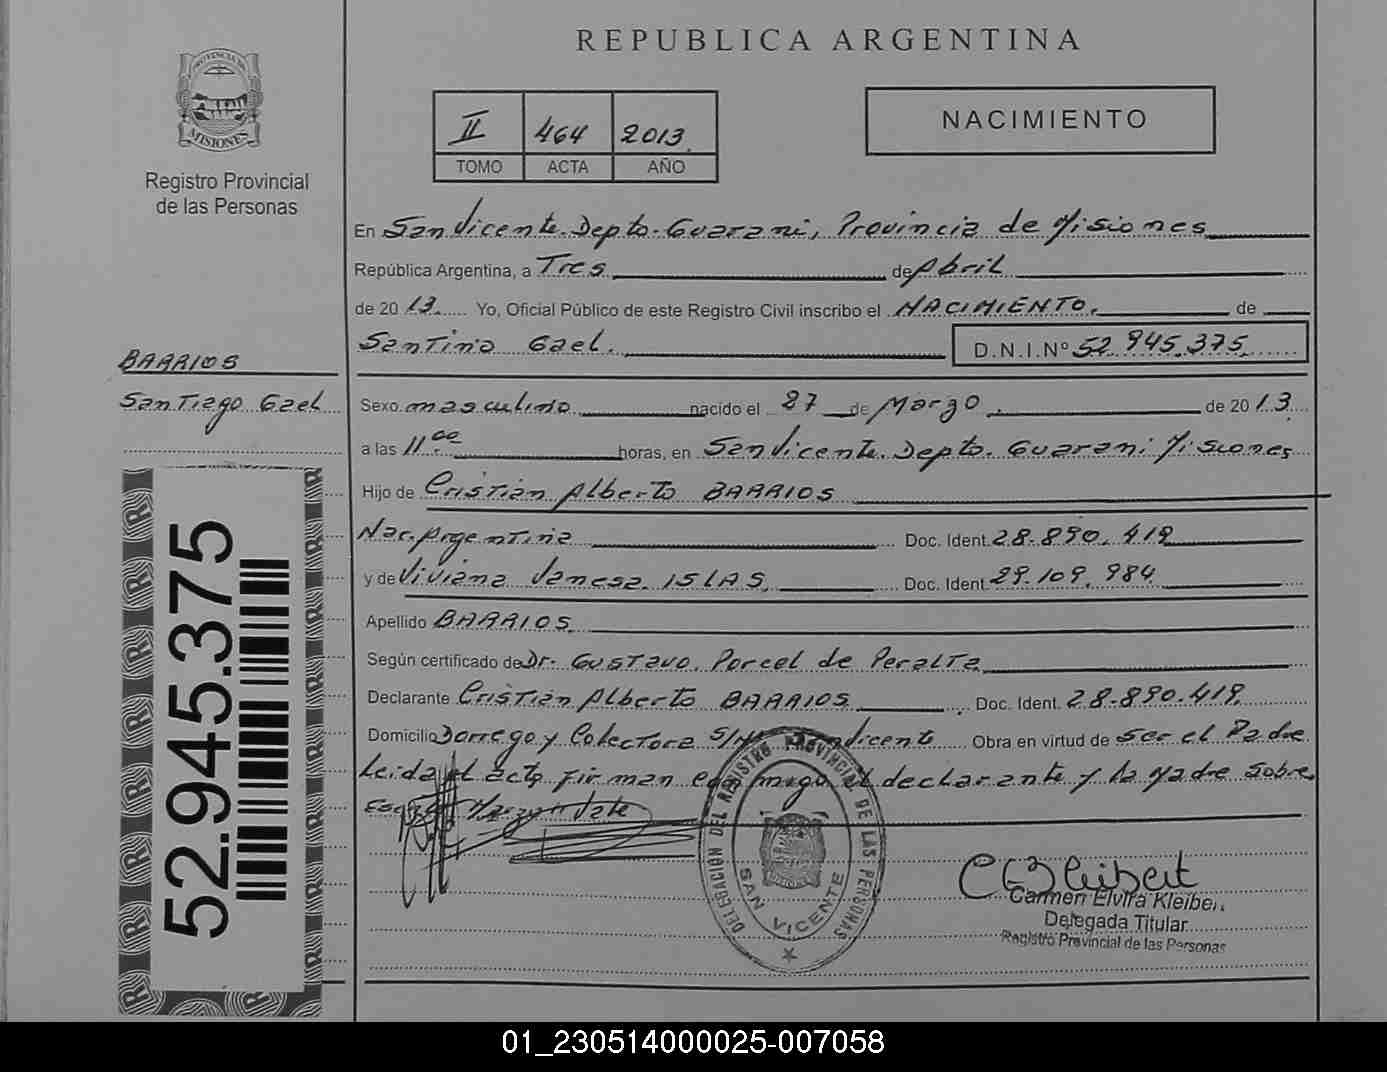 REPUBLICA ARGENTINA
PROVINCIA DE
MISIONES
Registro Provincial
de las Personas
II 464 2013
TOMO ACTA AÑO
NACIMIENTO
En San Vicente. Depto. Guarani, Provincia de Misiones
República Argentina, a Tres de Abril
de 2013 Yo, Oficial Público de este Registro Civil inscribo el NACIMIENTO. de
Santino Gael. D.N.I.Nº 52.945.375
BARRIOS
Santiago Gael
Sexo masculino nacido el 27 de Marzo de 2013
a las 11.00 horas, en San Vicente. Depto. Guarani Misiones
Hijo de Cristian Alberto BARRIOS
Nac. Argentina Doc. Ident. 28.890.419
y de Viviana Vanesa ISLAS Doc. Ident. 29.109.984
Apellido BARRIOS
Según certificado de Dr. Gustavo Porcel de Peralta
Declarante Cristian Alberto BARRIOS Doc. Ident. 28.890.419
Domicilio Dorrego y Colectora S/Nº San Vicente Obra en virtud de ser el Padre
Leida el acta firman conmigo el declarante y la Madre Sobre
52.945.375
DELEGACION DEL REGISTRO PROVINCIAL DE LAS PERSONAS
SAN VICENTE
Carmen Elvira Kleibert
Delegada Titular
Registro Provincial de las Personas
01_230514000025-007058